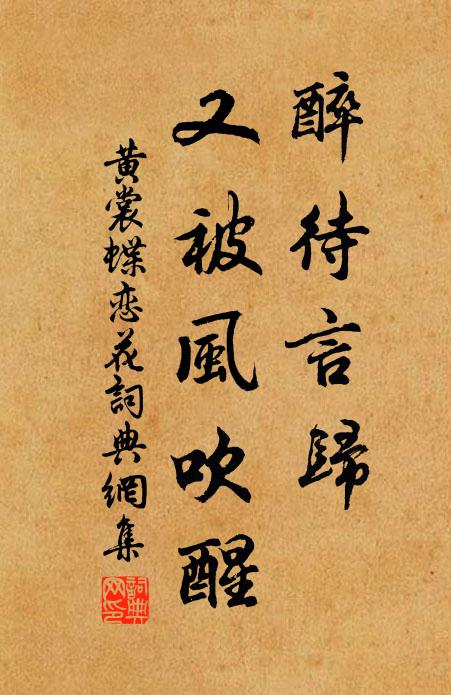 醉待言歸
又被風吹醒
黄裳蝶恋花詞典網集
詞典网印